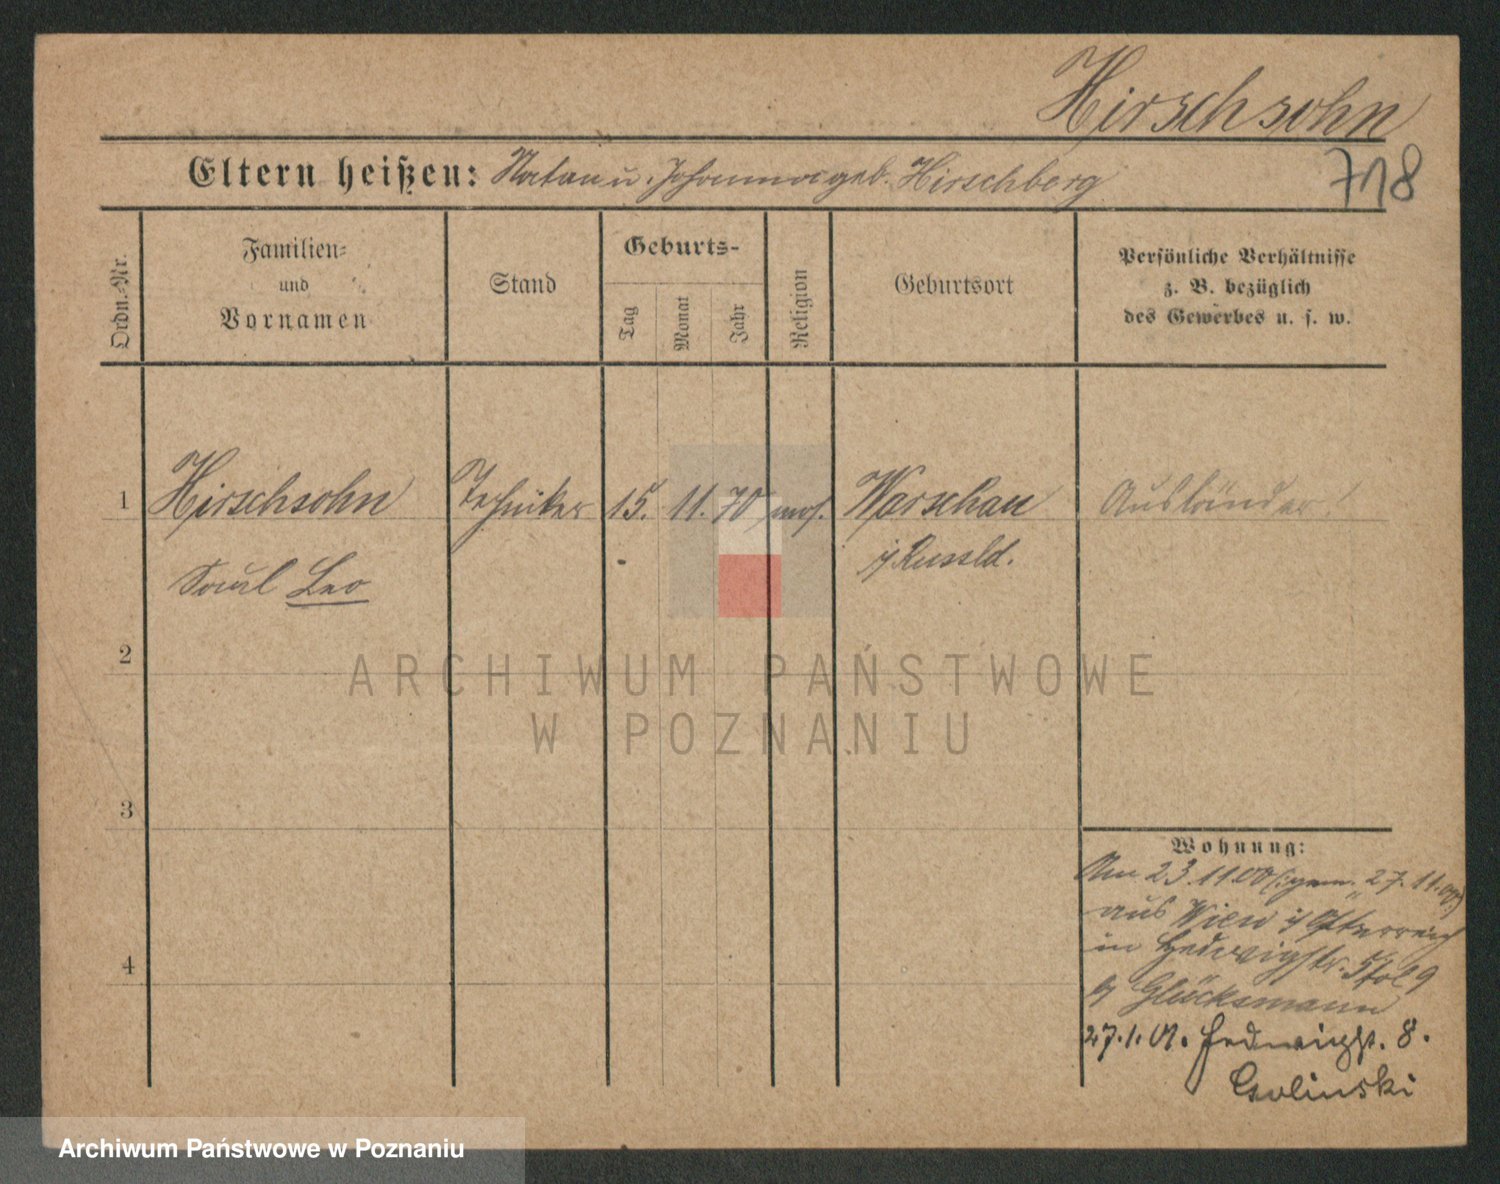 Hirschsohn
Eltern heißen: Natan u. Johanna geb. Hirschberg
718
Ordn.-Nr.
Familien- und Vornamen
Stand
Geburts-
Tag
Monat
Jahr
Religion
Geburtsort
Persönliche Verhältnisse
z. B. bezüglich
des Gewerbes u. s. w.
1 Hirschsohn Techniker 15. 11. 70 mos. Warschau Ausländer!
Saul Leo i/Russld.
2
3
4
ARCHIWUM PAŃSTWOWE
W POZNANIU
Wohnung:
Am 23.11.00 (: gem. 27.11.00 :)
aus Wien i/Österreich
in Hedwigstr. 9
b/ Glücksmann
27.1.01. Hedwigst. 8.
Golinski
Archiwum Państwowe w Poznaniu